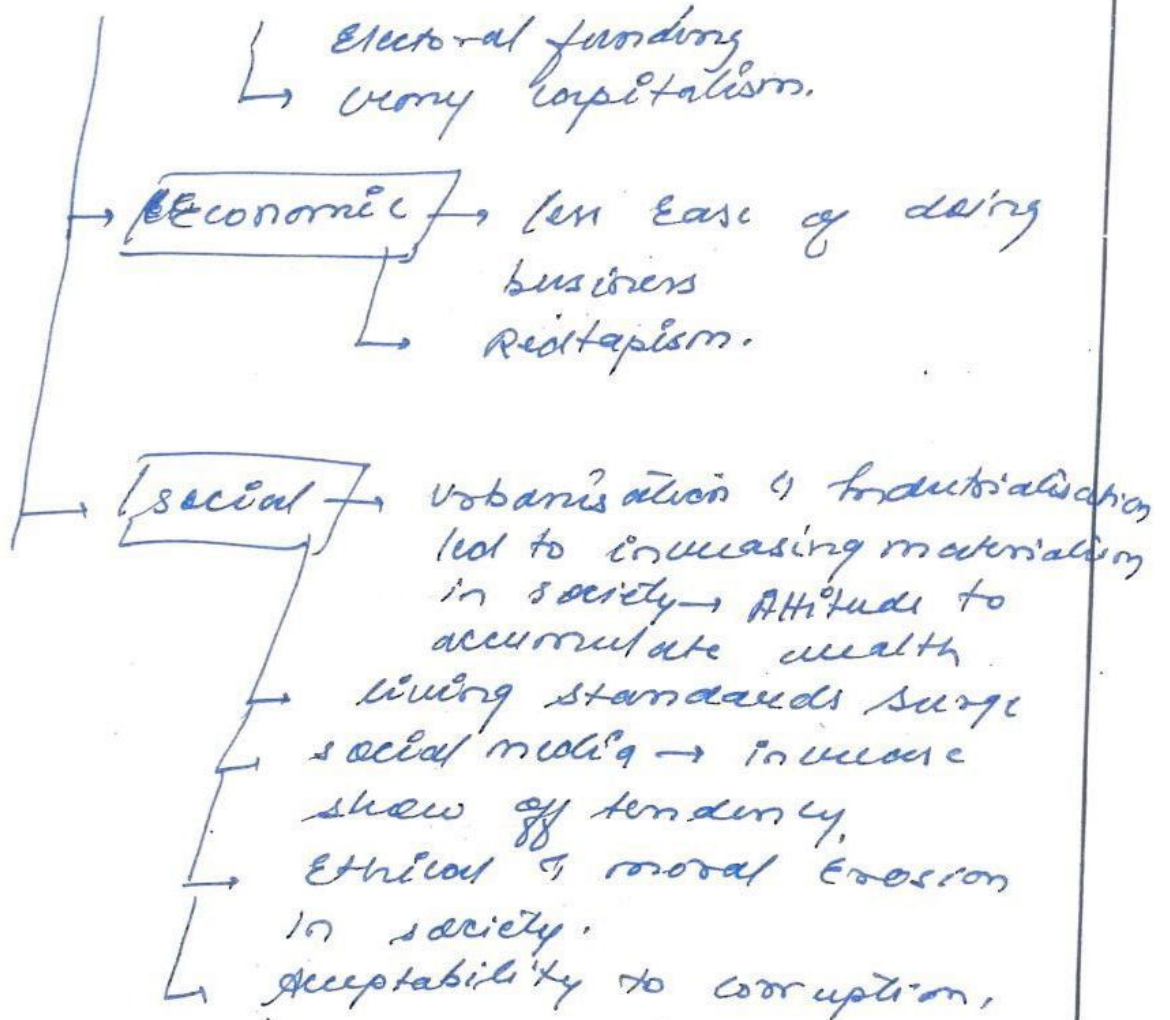 Electoral funding
crony capitalism.
Economic → less Ease of doing
business
Redtapism.
social → Urbanisation & Industrialisation
led to increasing materialism
in society → Attitude to
accumulate wealth
living standards surge
social media → increase
show off tendency.
Ethical & moral Erosion
in society.
Acceptability to corruption.